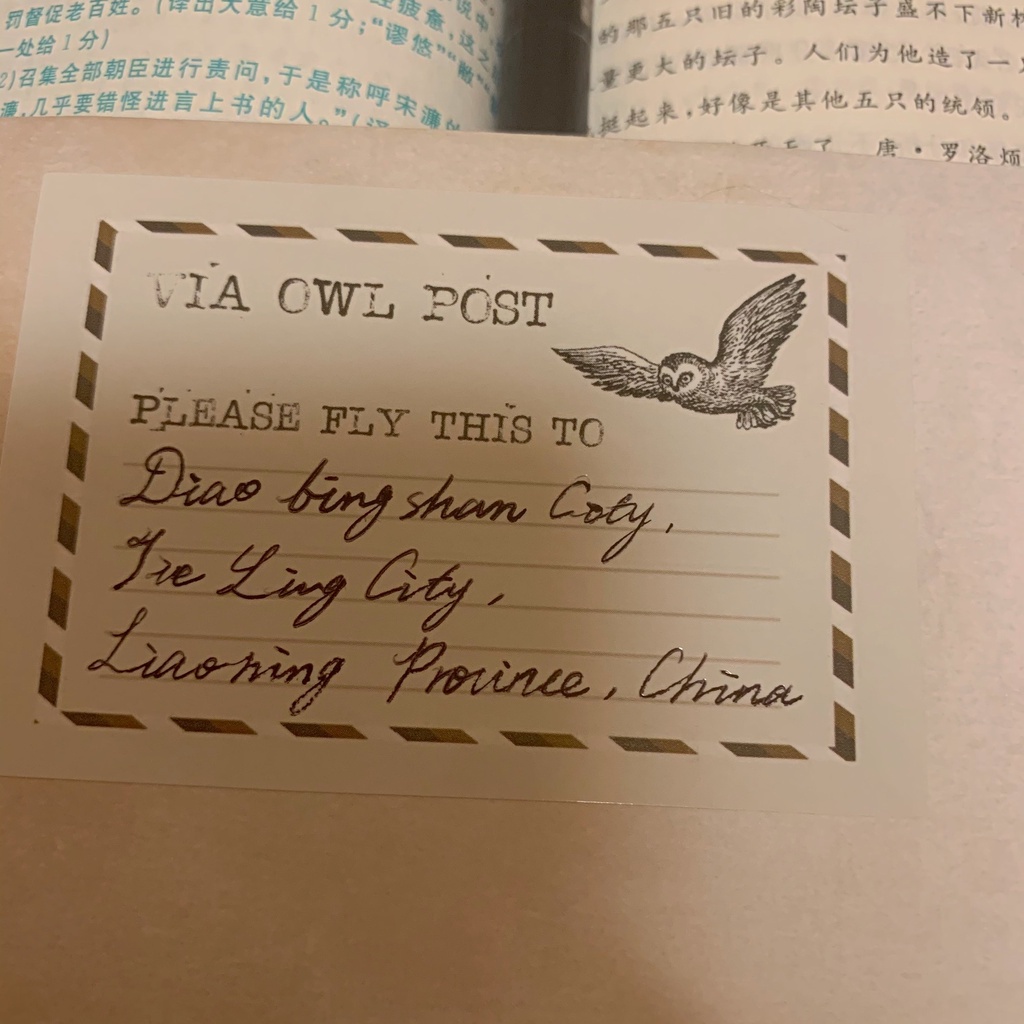 罚督促老百姓。(译出大意给1分;"谬悠""
一处给1分)
2)召集全部朝臣进行责问,于是称呼宋濂
濂,几乎要错怪进言上书的人。"(译
的那五只旧的彩陶坛子盛不下新
量更大的坛子。人们为他造了一
挺起来,好像是其他五只的统领。
唐·罗洛烦
VIA OWL POST
PLEASE FLY THIS TO
Diao bing shan Coty,
Tie Ling City,
Liaoning Province, China